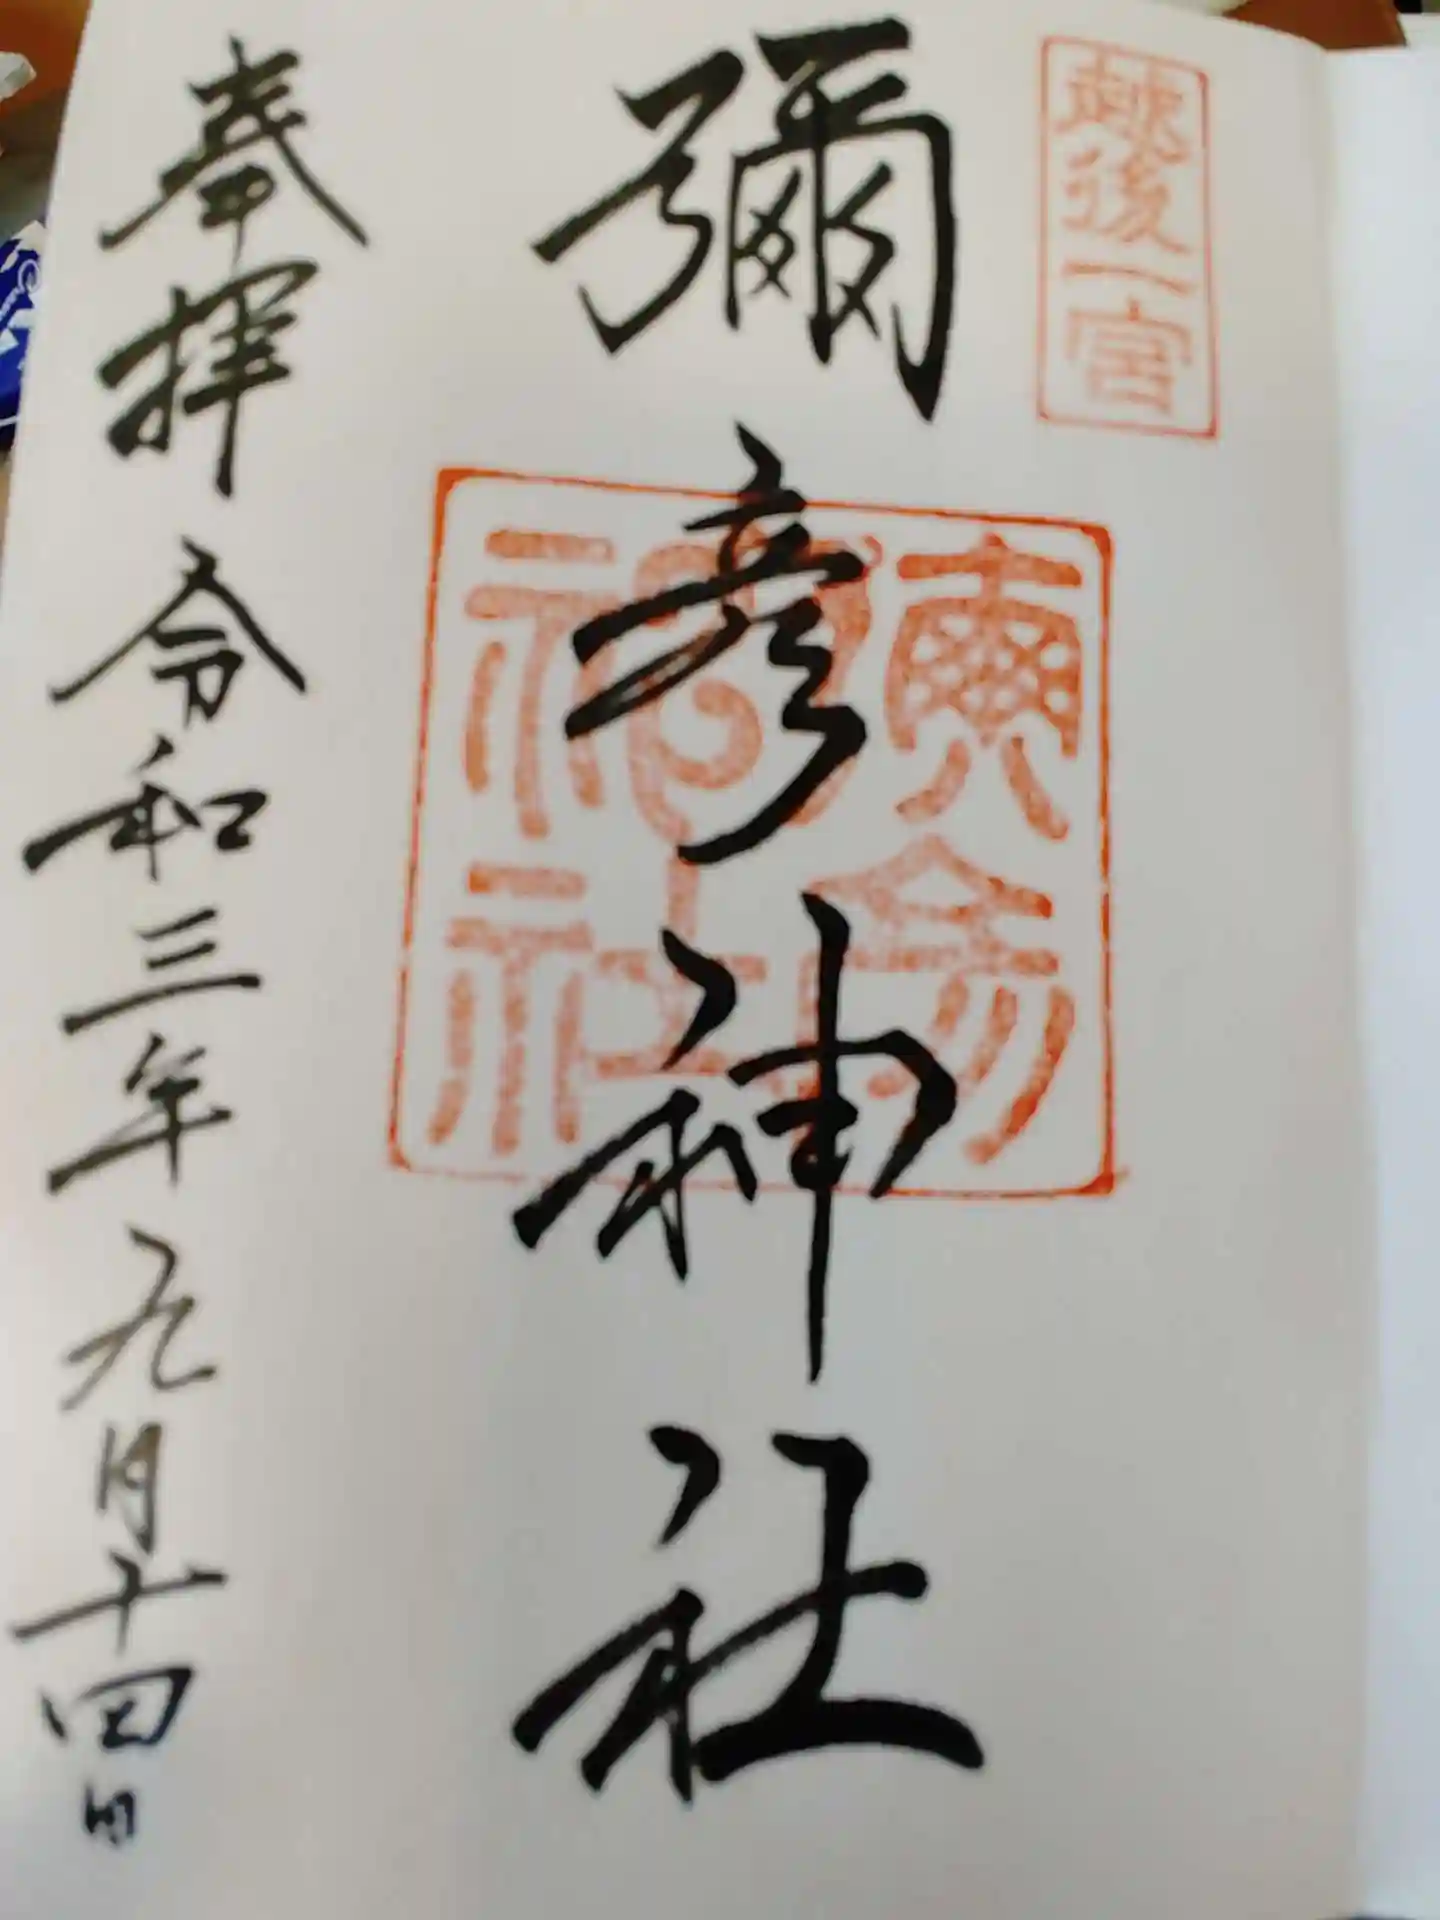 越後一宮
彌彦神社
奉拝 令和三年九月十四日